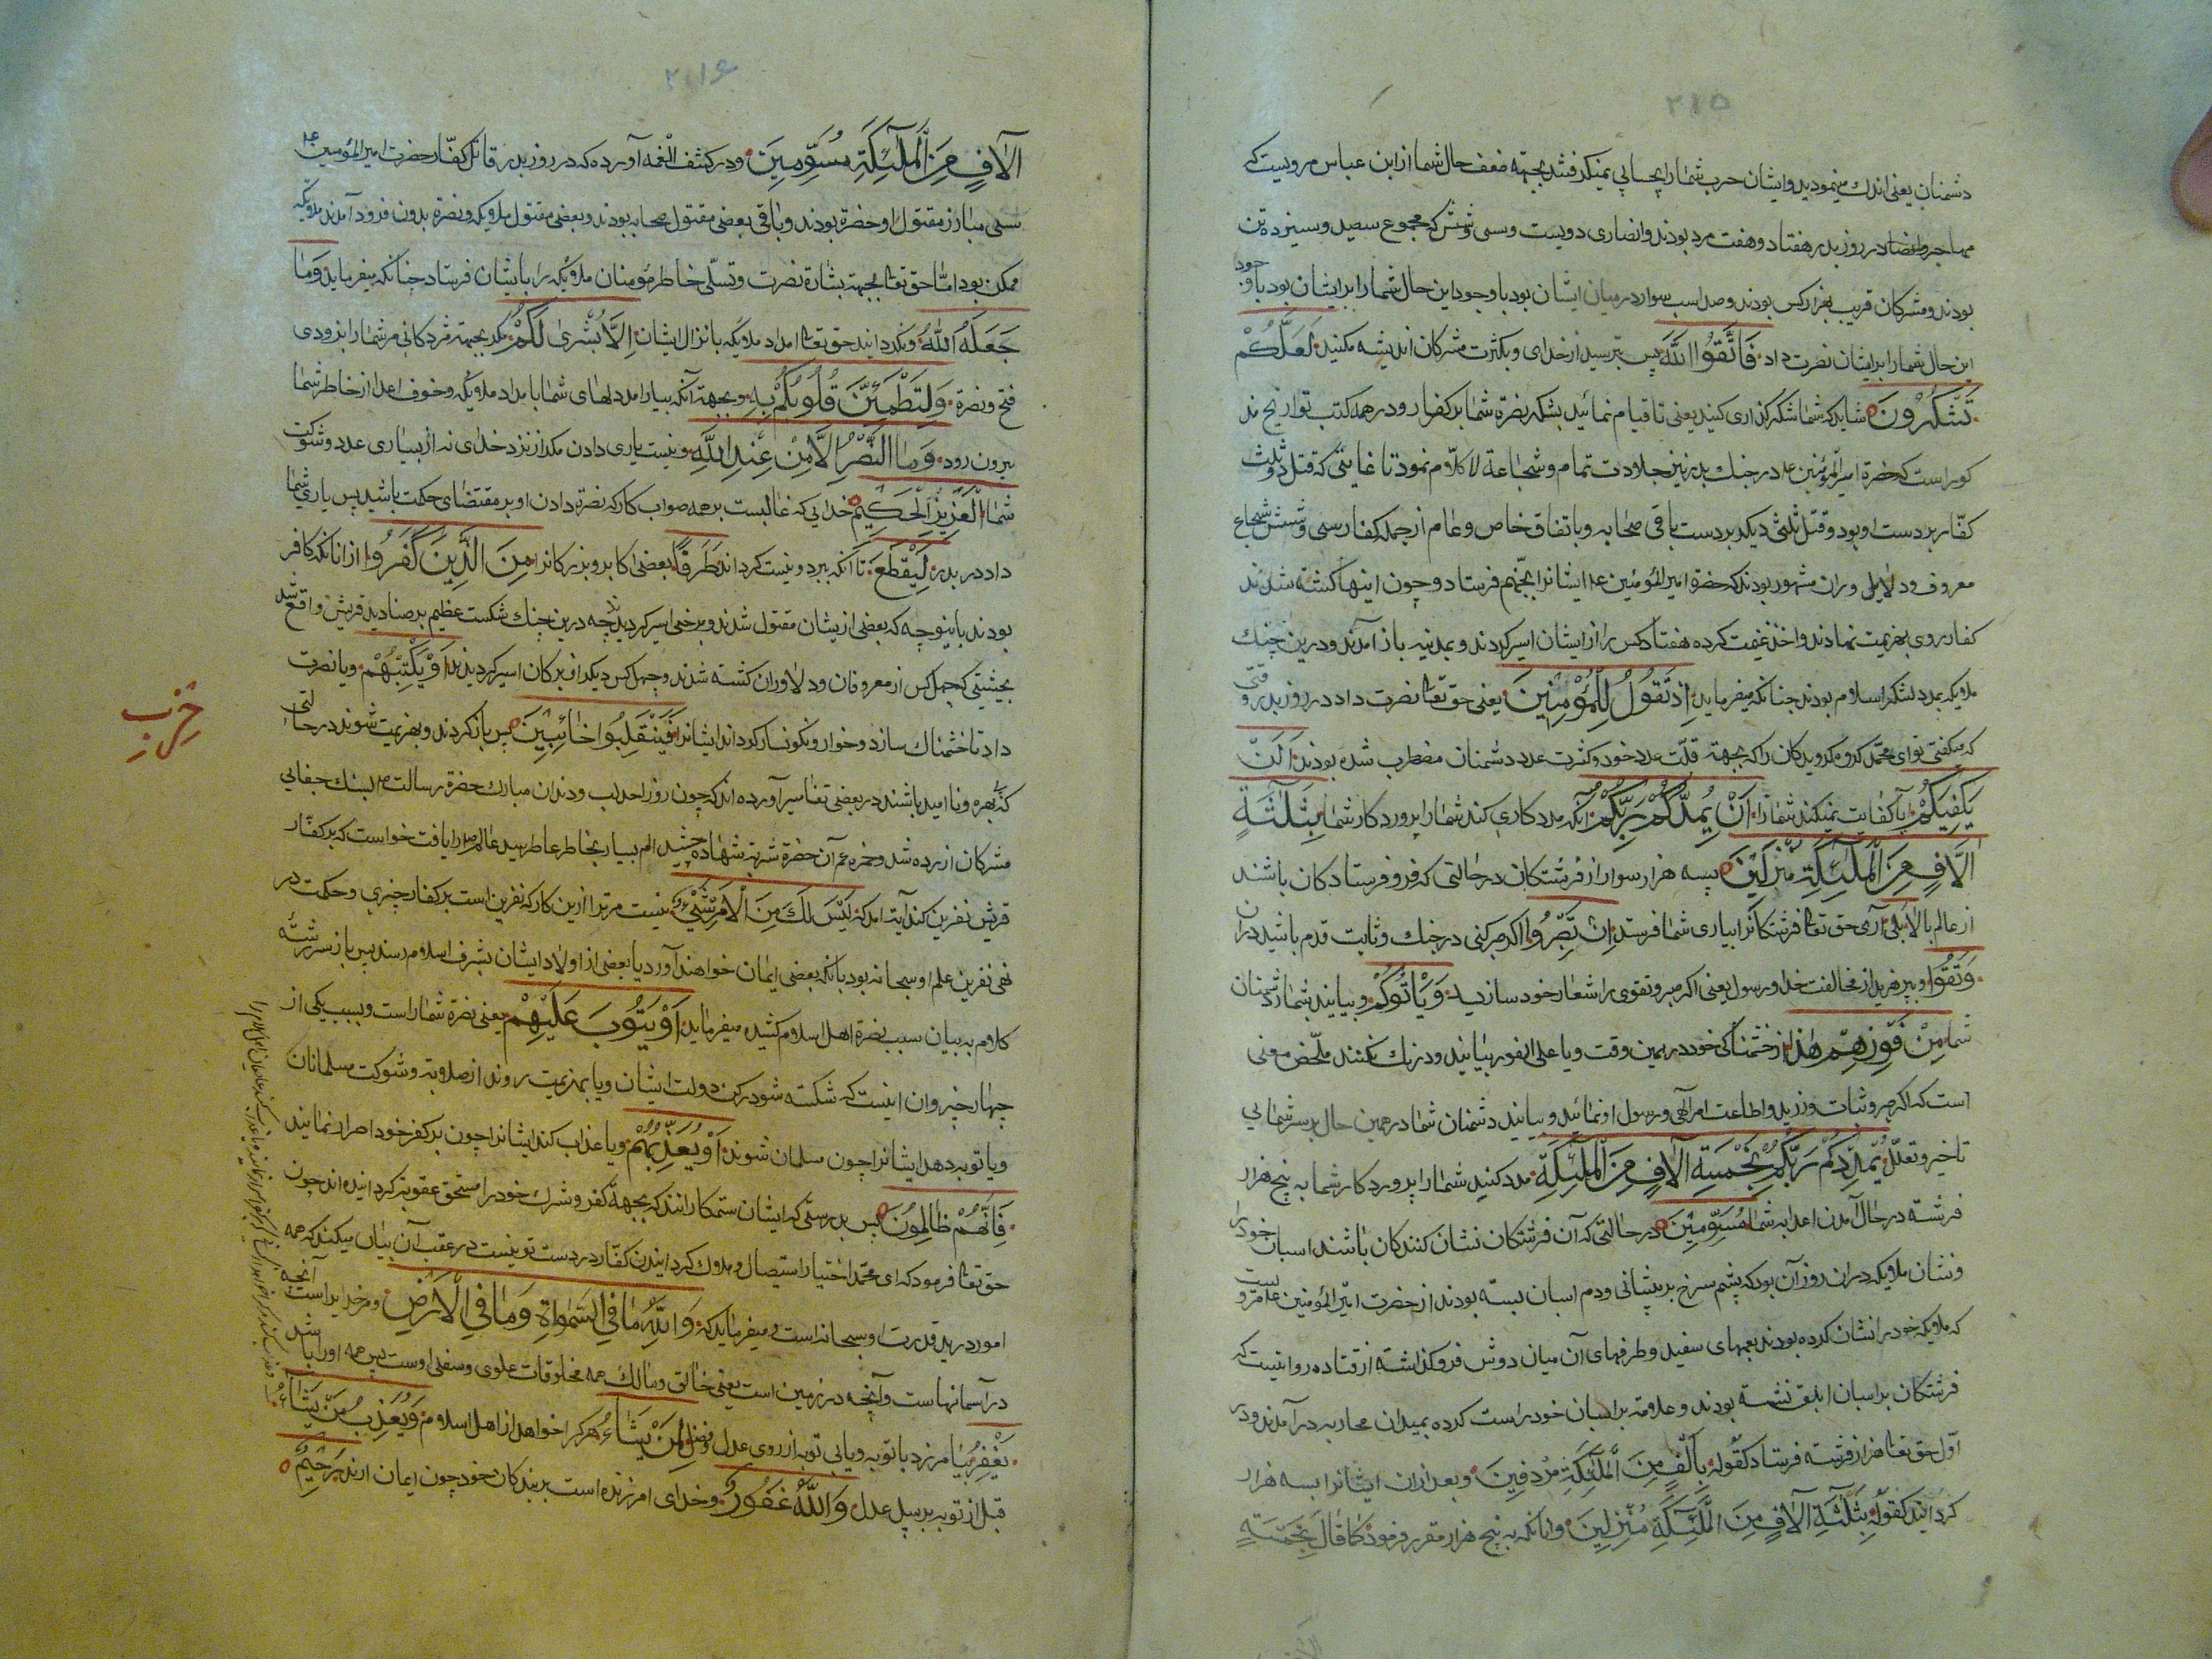 ۲۱۵
دشمنان یعنی اندك مینمودید و ایشان حرب شما را بحسابی نمیکرفتند بجهة ضعف حال شما از ابن عباس مرویست که
مهاجر و انصار در روز بدر هفتاد و هفت مرد بودند و انصاری دویست و سی و شش که مجموع سیصد و سیزده تن
بودند و مشرکان قریب بهزار کس بودند و صد اسب سوار در میان ایشان بود با وجود این حال شما را بر ایشان بود با وجود
این حال شما را بر ایشان نصرت داد فَاتَّقُوا اللّٰهَ پس بترسید از خدای و بکثرت مشرکان اندیشه مکنید لَعَلَّكُمْ
تَشْكُرُونَ شاید که شما شکر گذاری کنید یعنی تا قیام نمائید بشکر نصرة شما بر کفار و در همه کتب تواریخ مذ
کور است که حضرة امیر المؤمنین ع در جنك بدر نیز جلادت تمام و شجاعة لا کلام نمود تا غایتی که قتل دو ثلث
کفّار بر دست او بود و قتل ثلثی دیکر بر دست باقی صحابه و باتفاق خاص و عام از جمله کفار سی و شش شجاع
معروف و دلاوران مشهور بودند که حضرة امیر المؤمنین ع ایشانرا بجهنم فرستاد و چون اینها کشته شدند
کفار روی بهزیمت نهادند و اخذ غنیمت کرده هفتاد کس را از ایشان اسیر کردند و بمدینه باز آمدند و درین جنك
ملایکه بمدد لشکر اسلام بودند چنانکه میفرماید اِذْ تَقُولُ لِلْمُؤْمِنِینَ یعنی حق تعالی نصرت داد در روز بدر وقتی
که میکفتی تو ای محمد کروه مکرویدکان را که بجهة قلّت عدد خود و کثرت عدد دشمنان مضطرب شده بودند اَلَنْ
یَكْفِیَكُمْ آیا کفایت نمیکند شما را اَنْ یُمِدَّكُمْ رَبُّكُمْ آنکه مدد کاری کند شما را پرورد کار شما بِثَلٰثَةِ
اٰلَافٍ مِنَ الْمَلٰئِكَةِ مُنْزَلِینَ بسه هزار سوار از فرشتکان در حالتی که فرو فرستادکان باشند
از عالم بالا بَلٰی آری حق تعالی فرشتکانرا بیاری شما فرستد اِنْ تَصْبِرُوا اکر صبر کنی در جنك و ثابت قدم باشید در آن
وَتَتَّقُوا و بپرهیزید از مخالفت خدا و رسول یعنی اکر صبر و تقوی را شعار خود سازید وَیَأْتُوكُمْ و بیایند بشما دشمنان
شما مِنْ فَوْرِهِمْ هٰذَا از خشمناکی خود در همین وقت و یا علی الفور بیایند و درنك نکنند ملخّص معنی
است که اکر صبر و ثبات ورزید و اطاعت امر الٰهی و رسول او نمائید و بیایند دشمنان شما در همین حال بر سر شما بی
تاخیر و تعلّل یُمْدِدْكُمْ رَبُّكُمْ بِخَمْسَةِ اٰلَافٍ مِنَ الْمَلٰئِكَةِ مدد کند شما را پرورد کار شما به پنج هزار
فرشته در حال آمدن اعدا به شما مُسَوِّمِینَ در حالتی که آن فرشتکان نشان کنندکان باشند اسبان خود را
و نشان ملایکه در ان روز آن بود که پشم سرخ بر پیشانی و دم اسبان بسته بودند از حضرت امیر المؤمنین ع مرویست
که ملایکه خود را نشان کرده بودند بعمهای سفید و طرفهای آن میان دوش فرو کذاشته از قتاده روایتیست که
فرشتکان بر اسبان ابلق نشسته بودند و علامة بر اسبان خود راست کرده بمیدان محاربه در آمدند و در
اوّل حق تعالی هزار فرشته فرستاد کقوله بِاَلْفٍ مِنَ الْمَلٰئِكَةِ مُرْدِفِینَ و بعد ازان ایشانرا بسه هزار
کردانید کقوله بِثَلٰثَةِ اٰلَافٍ مِنَ الْمَلٰئِكَةِ مُنْزَلِینَ و انکه به پنج هزار مقرر فرمود کما قالَ بِخَمْسَةِ
۲۱۶
اٰلَافٍ مِنَ الْمَلٰئِكَةِ مُسَوِّمِینَ و در کشف الغمه آورده که در روز بدر قاتل کفّار حضرت امیر المؤمنین ع
سی مبارز مقتول او حضرة بودند و باقی بعضی مقتول صحابه بودند و بعضی مقتول ملایکه و نصرة بدون فرود آمدن ملایکه
ممکن بود امّا حق تعالی بجهة بشارة نصرت و تسلّی خاطر مؤمنان ملایکه را بایشان فرستاد چنانکه میفرماید وَمَا
جَعَلَهُ اللّٰهُ و نکردانید حق تعالی امداد ملایکه بانزال ایشان اِلَّا بُشْرٰی لَكُمْ مکر بجهة مژدکانی مر شما را بزودی
فتح و نصرة وَلِتَطْمَئِنَّ قُلُوبُكُمْ بِهِ و بجهة آنکه بیارامد دلهای شما بامداد ملایکه و خوف اعدا از خاطر شما
بیرون رود وَمَا النَّصْرُ اِلَّا مِنْ عِنْدِ اللّٰهِ و نیست یاری دادن مکر از نزد خدای نه از بسیاری عدد و شوکت
شما الْعَزِیزِ الْحَكِیمِ خدایی که غالبست بر همه صواب کار که نصرة دادن او بر مقتضای حکمت باشد پس یاری شما
داد در بدر لِیَقْطَعَ تا آنکه ببرد و نیست کرداند طَرَفًا بعضی اکابر و بزرکانرا مِنَ الَّذِینَ كَفَرُوا از انانکه کافر
بودند باینوجه که بعضی از یشان مقتول شدند و برخی اسیر کردیدند چه درین جنك شکست عظیم بر صنادید قریش واقع شد
بحیثیتی که چهل کس از معروفان و دلاوران کشته شدند و چهل کس دیکر اسیر کردیدند اَوْ یَكْبِتَهُمْ و یا نصرت
داد تا خشمناك سازد و خوار و نکونسار کرداند ایشانرا فَیَنْقَلِبُوا خَائِبِینَ پس باز کردند و بهزیمت شوند در حالتی
که بی‌بهره و ناامید باشند در بعضی تفاسیر آورده اند که چون روز احد لب و دندان مبارك حضرة رسالت ص بسنك جفای
مشرکان ازرده شد و حمزه عم آن حضرة شربت شهاده چشید الم بسیار بخاطر عاطر سید عالم ص راه یافت خواست که بر کفّار
قریش نفرین کند آیة امد که لَیْسَ لَكَ مِنَ الْاَمْرِ شَیْءٌ نیست مر ترا ازین کار که نفرین است بر کفار چیزی و حکمت در
نهی نفرین علم او سبحانه بود بآنکه بعضی ایمان خواهند آورد یا بعضی از اولاد ایشان بشرف اسلام رسند پس باز سر رشته
کلام به بیان سبب نصرة اهل اسلام کشیده میفرماید اَوْ یَتُوبَ عَلَیْهِمْ یعنی نصرة شما راست و بسبب یکی از
چهار چیز و ان اینست که شکسته شود رکن دولت ایشان و یا بهزیمت روند از صلابة و شوکت مسلمانان
و یا توبه دهد ایشانرا چون مسلمان شوند اَوْ یُعَذِّبَهُمْ و یا عذاب کند ایشانرا چون بر کفر خود اصرار نمایند
فَاِنَّهُمْ ظَالِمُونَ پس بدرستی که ایشان ستمکارانند که بجهة کفر و شرك خود را مستحق عقوبة کردانیده اند چون
حق تعالی فرمود که ای محمّد اختیار استیصال و هلاك کردانیدن کفّار در دست تو نیست در عقب آن بیان میکند که همه
امور در ید قدرت او سبحانه است و میفرماید که وَلِلّٰهِ مَا فِی السَّمٰوَاةِ وَمَا فِی الْاَرْضِ و مر خدایراست آنچه
در آسمانهاست و آنچه در زمین است یعنی خالق و مالك همه مخلوقات علوی و سفلی اوست پس همه او را باشد
یَغْفِرُ بیامرزد با توبه و یا بی توبه از روی عدل و فضل لِمَنْ یَشَاءُ هر کرا خواهد از اهل اسلام وَیُعَذِّبُ مَنْ یَشَاءُ
قبل از توبه بر سبیل عدل وَاللّٰهُ غَفُورٌ و خدای امرزنده است بر بندکان خود چون ایمان ارند رَحِیمٌ
حِزْبِ